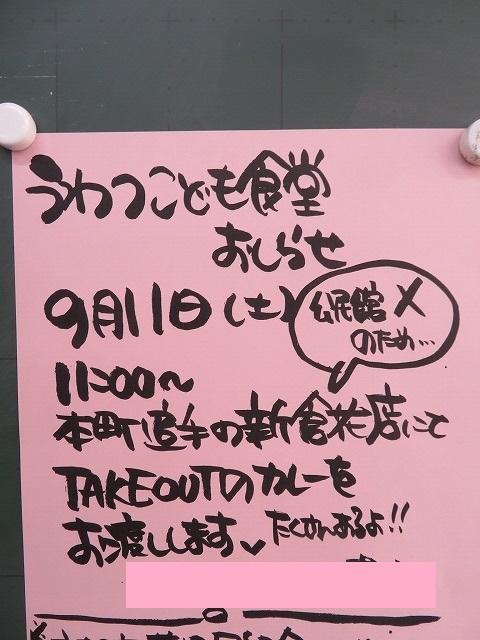 うわつこども食堂
おしらせ
9月11日(土)
公民館 ✕
のため…
11:00〜
本町追手の新倉花店にて
TAKEOUTのカレーを
お渡しします♥
たくさんあるよ!!